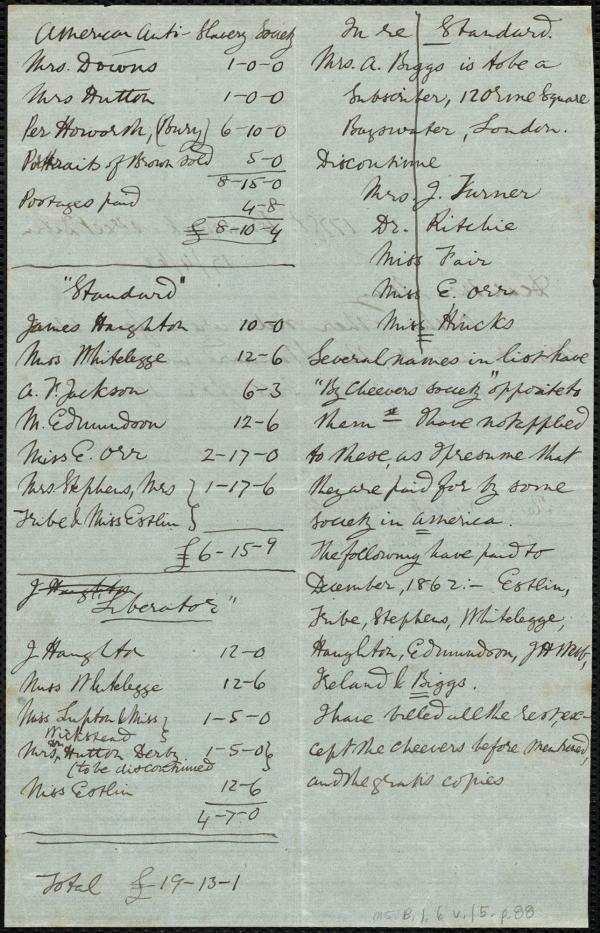 American Anti-Slavery Society
Mrs. Downs 1-0-0
Mrs Hutton 1-0-0
Per Howorth, (Bury) 6-10-0
Portraits of Brown sold 5-0
8-15-0
Postages paid 4-8
£ 8-10-4
"Standard"
James Haughton 10-0
Miss Whitelegge 12-6
A. F. Jackson 6-3
M. Edmundson 12-6
Miss E. Orr 2-17-0
Mrs. Stephens, Mrs } 1-17-6
Tribe & Miss Estlin }
£ 6-15-9
J Haughton
Liberator"
J Haughton 12-0
Miss Whitelegge 12-6
Miss Lupton & Miss } 1-5-0
Wicksteed
Mrs. Hutton Derby 1-5-0 }
(to be discontinued
Miss Estlin 12-6
4-7-0
Total £ 19-13-1
In re Standard.
Mrs. A. Biggs is to be a
Subscriber, 12 Orme Square
Bayswater, London.
Discontinue
Mrs. J. Turner
Dr. Ritchie
Miss Fair
Miss E. Orr
Miss Hincks
Several names in list have
"By Cheevers Society" opposite to
them = I have not applied
to these, as I presume that
they are paid for by some
society in America.
The following have paid to
December, 1862:- Estlin,
Tribe, Stephens, Whitelegge,
Haughton, Edmundson, J H Webb,
Ireland & Biggs.
I have billed all the rest, ex-
cept the Cheevers before mentioned,
and the gratis copies
MS. B. 1. 6 v. 15. p. 88